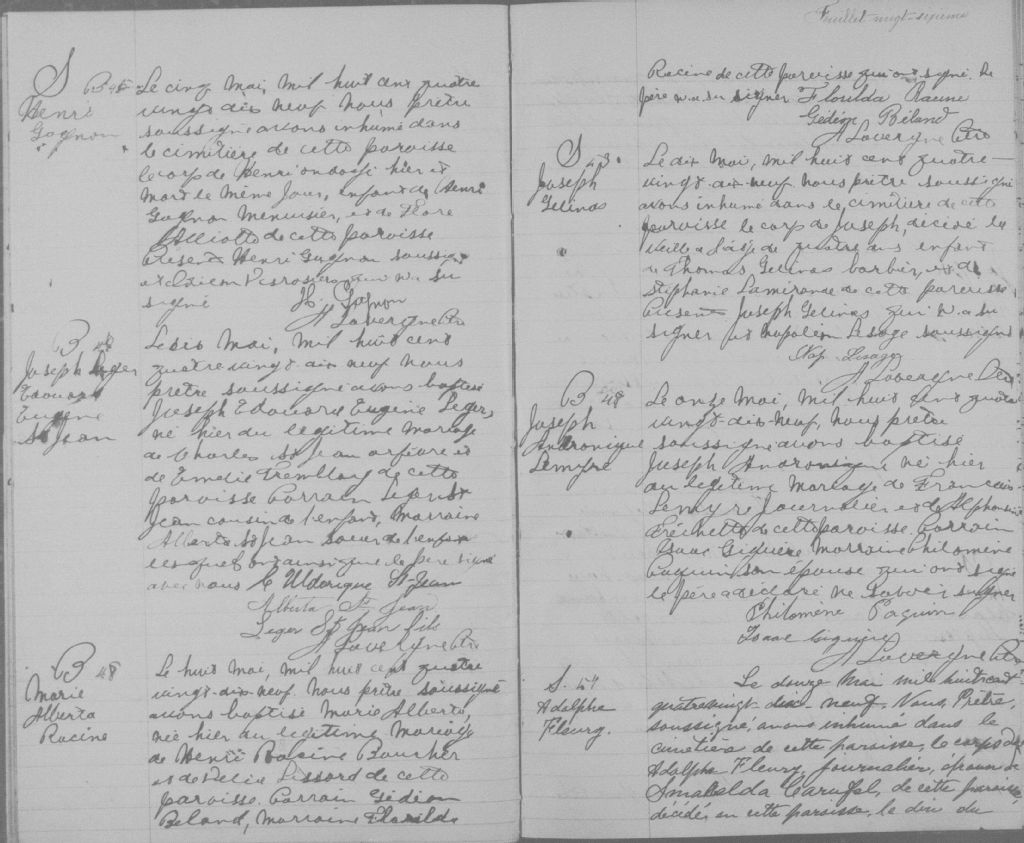 S
B 45
Henri
Gagnon
Le cinq Mai, mil huit cent quatre
vingt dix neuf nous prêtre
soussigné avons inhumé dans
le cimitière de cette paroisse
le corps de Henri ondoyé hier et
mort le même jour, enfant de Henri
Gagnon Menuisier, et de Flore
Alliotte de cette paroisse
Présents Henri Gagnon soussi-
gné et qui n'a su
signé H. Gagnon
A Lavergne Ptre
B 46
Joseph Leger
Edouard
Eugène
St Jean
Le six Mai, mil huit cent
quatre vingt dix neuf nous
prêtre soussigné avons baptisé
Joseph Edouard Eugène Leger,
né hier du legitime mariage
de Charles St Jean orfèvre et
de Emelie Tremblay de cette
paroisse Parrain Leger St
Jean cousin de l'enfant, Marraine
Alberta St Jean soeur de l'enfant
lesquels ont ainsi que le père signé
avec nous C Ulderique St Jean
Alberta St Jean
Leger St Jean fils
A Lavergne Ptre
B 48
Marie
Alberta
Racine
Le huit Mai, mil huit cent quatre
vingt-dix-neuf nous prêtre soussigné
avons baptisé Marie Alberta,
née hier du legitime mariage
de Henri Racine Boucher
et de Delia Lissard de cette
paroisse. Parrain Gédéon
Beland, Marraine Florilda
Feuillet vingt-sixieme
Racine de cette paroisse qui ont signé. Le
père n'a su signer Florilda Racine
Gédéon Béland
A Lavergne Ptre
S 43
Joseph
Gelinas
Le dix Mai, mil huit cent quatre-
vingt-dix-neuf nous prêtre soussigné
avons inhumé dans le cimitière de cette
paroisse le corps de Joseph, décédé la
veille a l'âge de quatre ans enfant
de Thomas Gelinas barbier, et de
Stéphanie Lamirande de cette paroisse
Présents Joseph Gelinas qui n'a su
signer et Napoléon Lesage soussigné
Nap. Lesage
A Lavergne Ptre
B 48
Joseph
Andronique
Lemyre
Le onze Mai, mil huit cent quatre
vingt-dix-neuf, nous prêtre
soussigné avons baptisé
Joseph Andronique né hier
du legitime mariage de Francois
Lemyre Journalier et de Alphonsine
Fréchette de cette paroisse. Parrain
Isaac Giguère Marraine Philomène
Paquin son épouse qui ont signé
le père a declaré ne savoir signer
Philomène Paquin
Isaac Giguère
A Lavergne Ptre
S. 44
Adolpha
Fleury.
Le douze Mai mil huit cent
quatre vingt dix neuf Nous, Prêtre,
soussigné, avons inhumé dans le
cimetière de cette paroisse, le corps de
Adolpha Fleury, journalier, époux de
Smaralda Carufel, de cette paroisse
décédé, en cette paroisse, le dix du